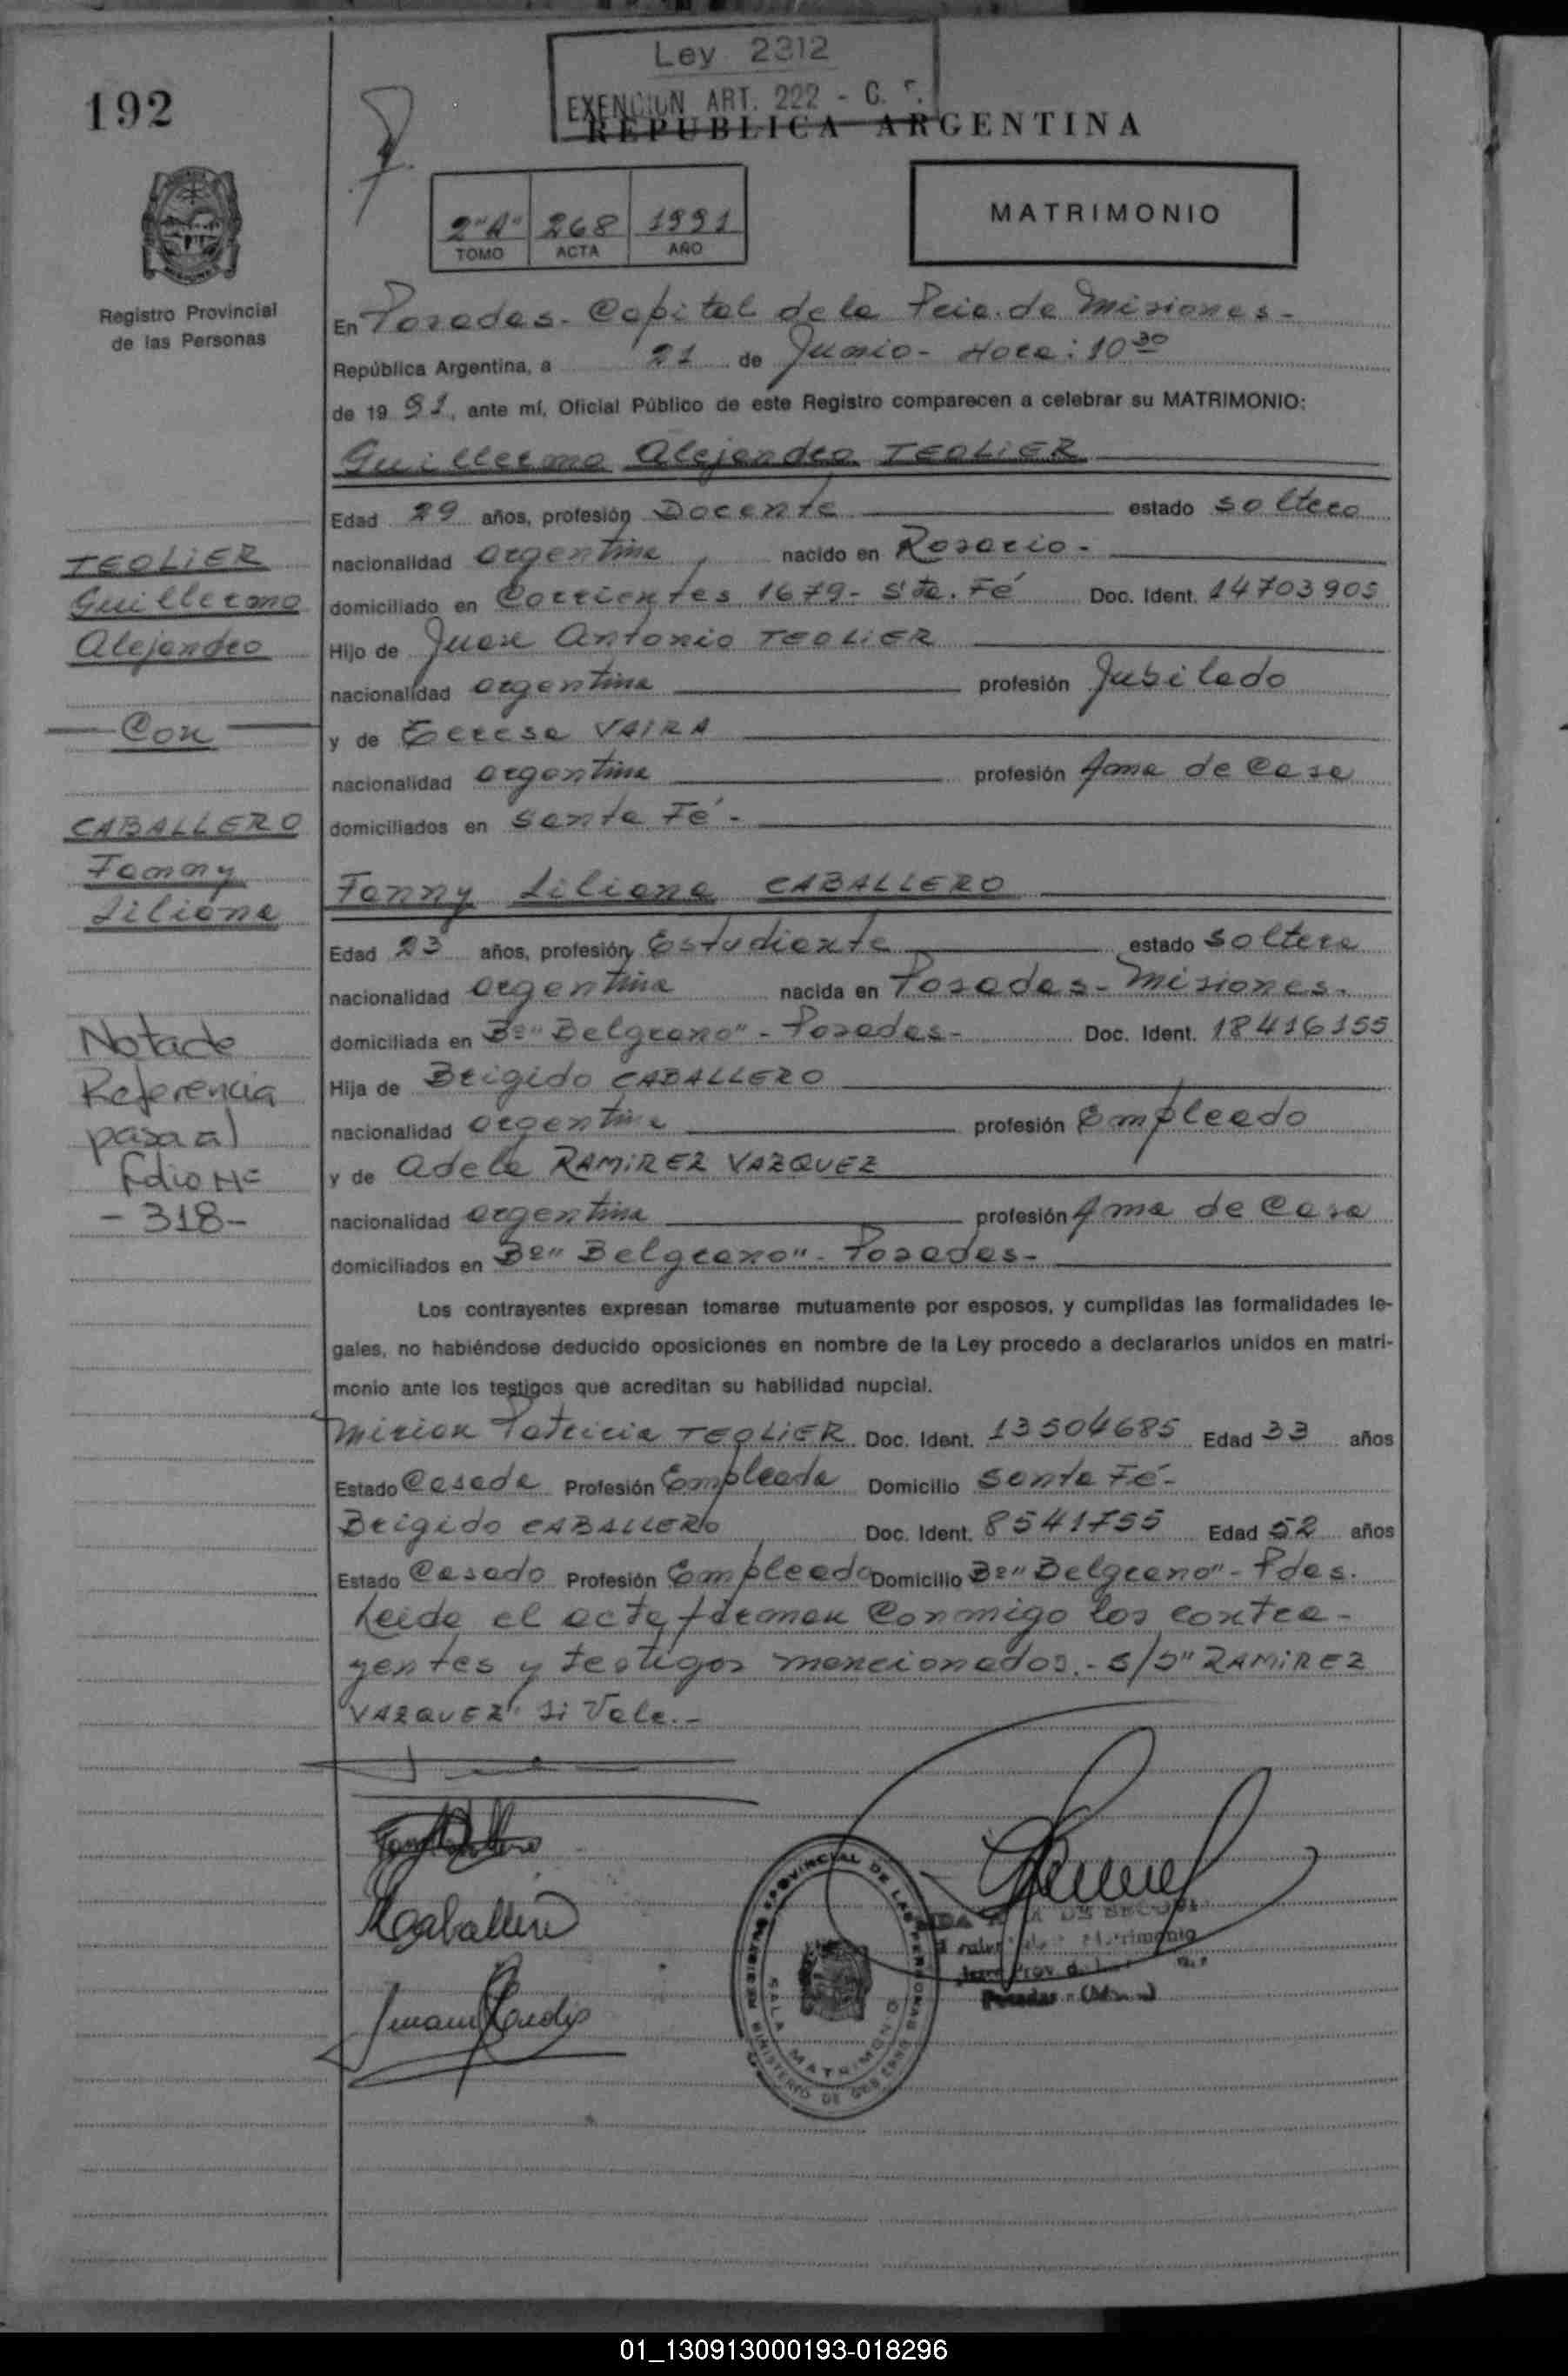 192
Ley 2312
EXENCION ART. 222 - C.
REPUBLICA ARGENTINA
2"A" 268 1991
TOMO ACTA AÑO
MATRIMONIO
Registro Provincial
de las Personas
En Posadas - Capital de la Pcia. de Misiones -
República Argentina, a 21 de Junio - Hora: 10 30
de 19 91, ante mí, Oficial Público de este Registro comparecen a celebrar su MATRIMONIO:
Guillermo Alejandro TEOLIER
Edad 29 años, profesión Docente estado soltero
nacionalidad argentina, nacido en Rosario -
domiciliado en Corrientes 1679 - Sta. Fé Doc. Ident. 14703905
Hijo de Juan Antonio TEOLIER
nacionalidad argentina profesión Jubilado
y de Teresa VAIRA
nacionalidad argentina profesión Ama de Casa
domiciliados en Santa Fé -
Fanny Liliana CABALLERO
Edad 23 años, profesión Estudiante estado soltera
nacionalidad argentina nacida en Posadas - Misiones -
domiciliada en Bº "Belgrano" - Posadas - Doc. Ident. 18416155
Hija de Brigido CABALLERO
nacionalidad argentina profesión Empleado
y de Adela RAMIREZ VAZQUEZ
nacionalidad argentina profesión Ama de Casa
domiciliados en Bº "Belgrano" - Posadas -
Los contrayentes expresan tomarse mutuamente por esposos, y cumplidas las formalidades le-
gales, no habiéndose deducido oposiciones en nombre de la Ley procedo a declararlos unidos en matri-
monio ante los testigos que acreditan su habilidad nupcial.
Mirian Patricia TEOLIER Doc. Ident. 13504685 Edad 33 años
Estado Casada Profesión Empleada Domicilio Santa Fé -
Brigido CABALLERO Doc. Ident. 8541755 Edad 52 años
Estado Casado Profesión Empleado Domicilio Bº "Belgrano" - Pdas.
Leida el acta firman conmigo los contra-
yentes y testigos mencionados. - S/S" RAMIREZ
VAZQUEZ" Si Vale. -
TEOLIER
Guillermo
Alejandro
Con
CABALLERO
Fanny
Liliana
Nota de
Referencia
pasa al
folio Nº
- 318 -
Caballero
REGISTRO PROVINCIAL DE LAS PERSONAS
SALA MATRIMONIO
MINISTERIO DE GOBIERNO
Posadas
01_130913000193-018296